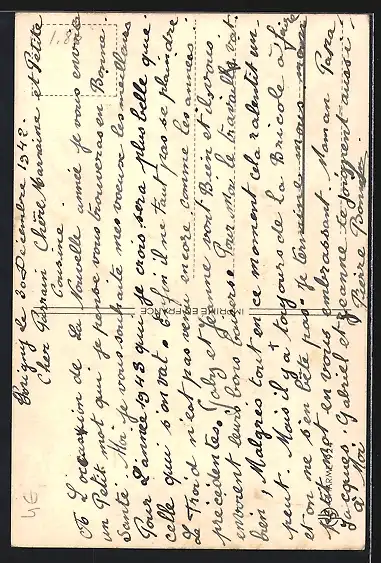 le 30 Décembre 1942.
Cher Parrain Chère Marraine et Petite
Cousine.
A L'occassion de La Nouvelle année je vous envoie
un Petit mot qui je pense vous trouveras en Bonne
Santé. Moi je vous souhaite mes voeux les meilleurs
Pour L'année 1943 qui je crois sera plus belle que
celle qui s'en vat. Enfin il ne faut pas se plaindre
Le Froid n'est pas venu encore comme les années
précédentes. et Jeanne vont Bien et ils vous
envoient leurs bons Pour Moi le travaille vat
bien, Malgres tout en ce moment cela ralentit un
peut. Mais il y a toujours de La Bricole à faire
et on ne s'en bête pas. Je termine mon
petit mot et en vous embrassant. Maman Papa
Jacques, Gabriel et Jeanne se joignent aussi
à Moi. Pierre
IMPRIMÉ EN FRANCE
1.8
4€